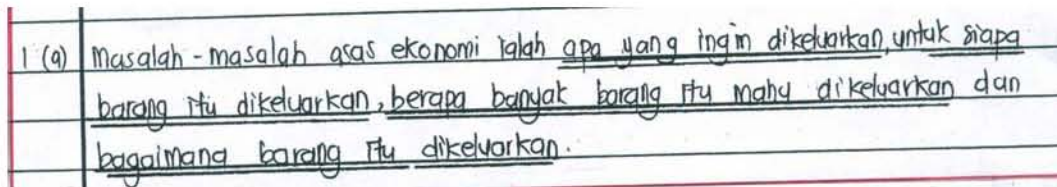 1 (a) Masalah-masalah asas ekonomi ialah apa yang ingin dikeluarkan, untuk siapa
barang itu dikeluarkan, berapa banyak barang itu mahu dikeluarkan dan
bagaimana barang itu dikeluarkan.